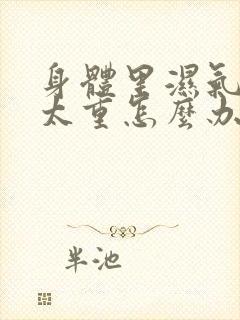 身體里濕氣
太重怎麼办
半池